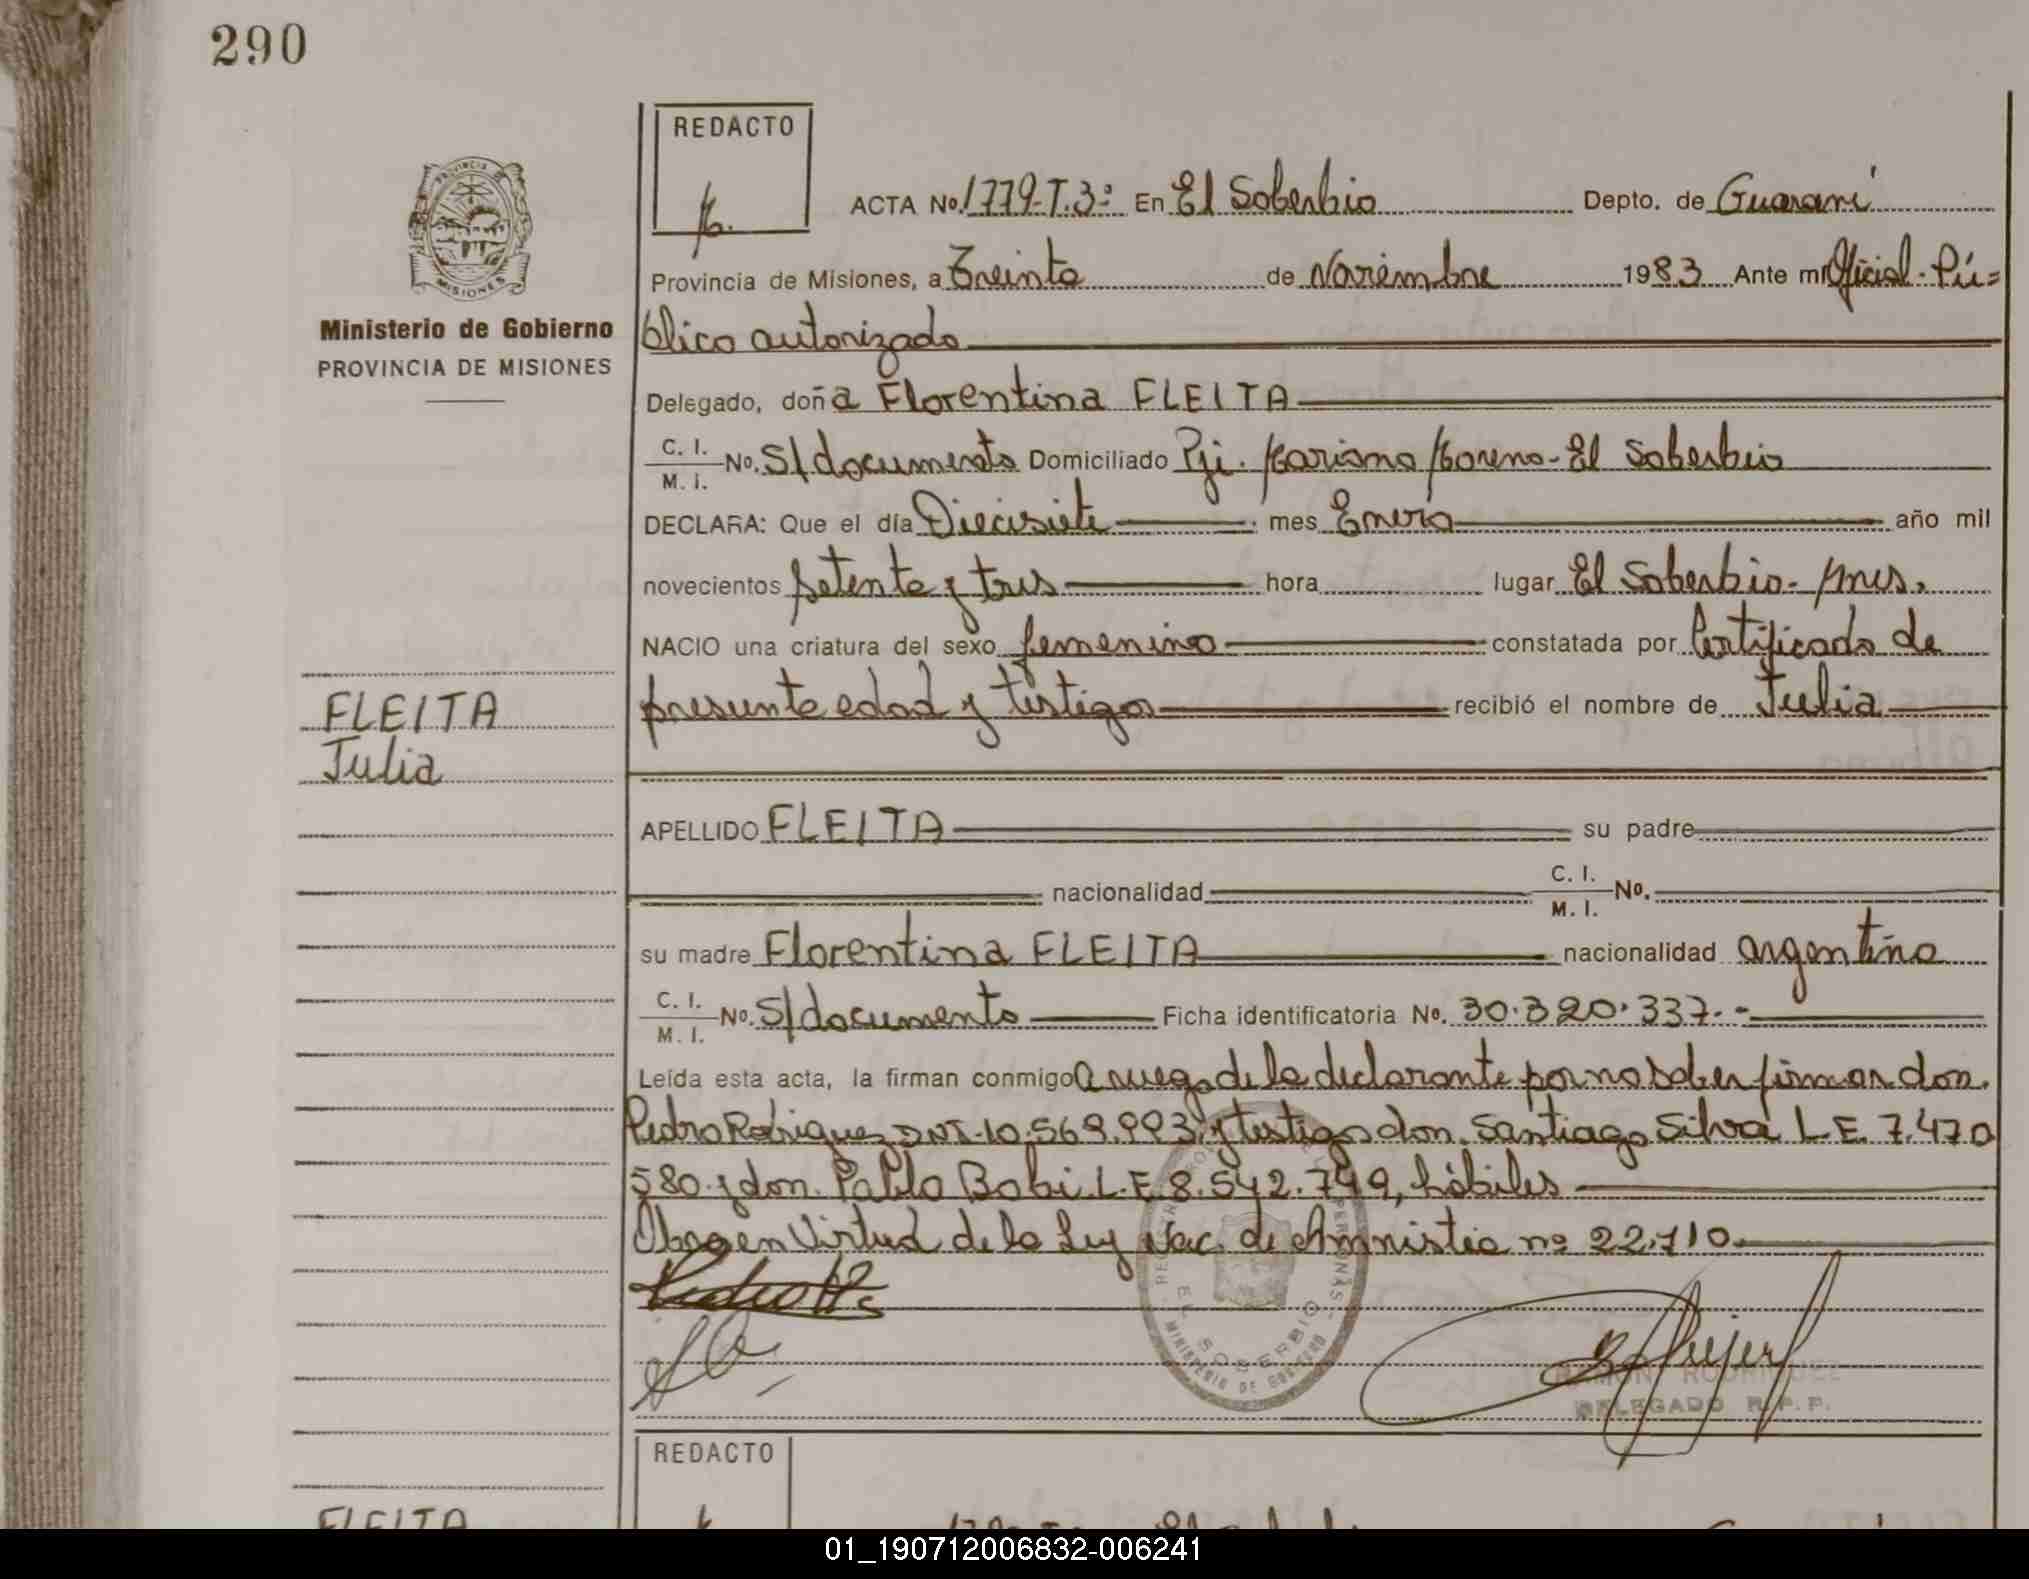 290
REDACTO
ACTA No. 1779-T.3º En El Soberbio Depto. de Guaraní
Provincia de Misiones, a Treinta de Noviembre 1983 Ante mi Oficial Pú=
blico autorizado
PROVINCIA DE
MISIONES
Ministerio de Gobierno
PROVINCIA DE MISIONES
Delegado, doña Florentina FLEITA
C. I. M. I. No. S/documento Domiciliado Pji. Mariano Moreno-El Soberbio
DECLARA: Que el día Diecisiete mes Enero año mil
novecientos setenta y tres hora lugar El Soberbio-Mnes.
NACIO una criatura del sexo femenino constatada por Certificado de
presunta edad y testigos recibió el nombre de Julia
FLEITA
Julia
APELLIDO FLEITA su padre
nacionalidad C. I. M. I. No.
su madre Florentina FLEITA nacionalidad argentina
C. I. M. I. No. S/documento Ficha identificatoria No. 30.320.337.-
Leída esta acta, la firman conmigo a ruego de la declarante por no saber firmar don.
Pedro Rodriguez DNI-10.569.993 y testigos don. Santiago Silva L.E. 7.470
580 y don. Pablo Bobi L.E 8.542.749, hábiles
Obra en Virtud de la Ley Nac. de Amnistia nº 22.710.
EL SOBERBIO
MINISTERIO DE GOBIERNO
RAMON RODRIGUEZ
DELEGADO R.P.P.
REDACTO
FLEITA
01_190712006832-006241